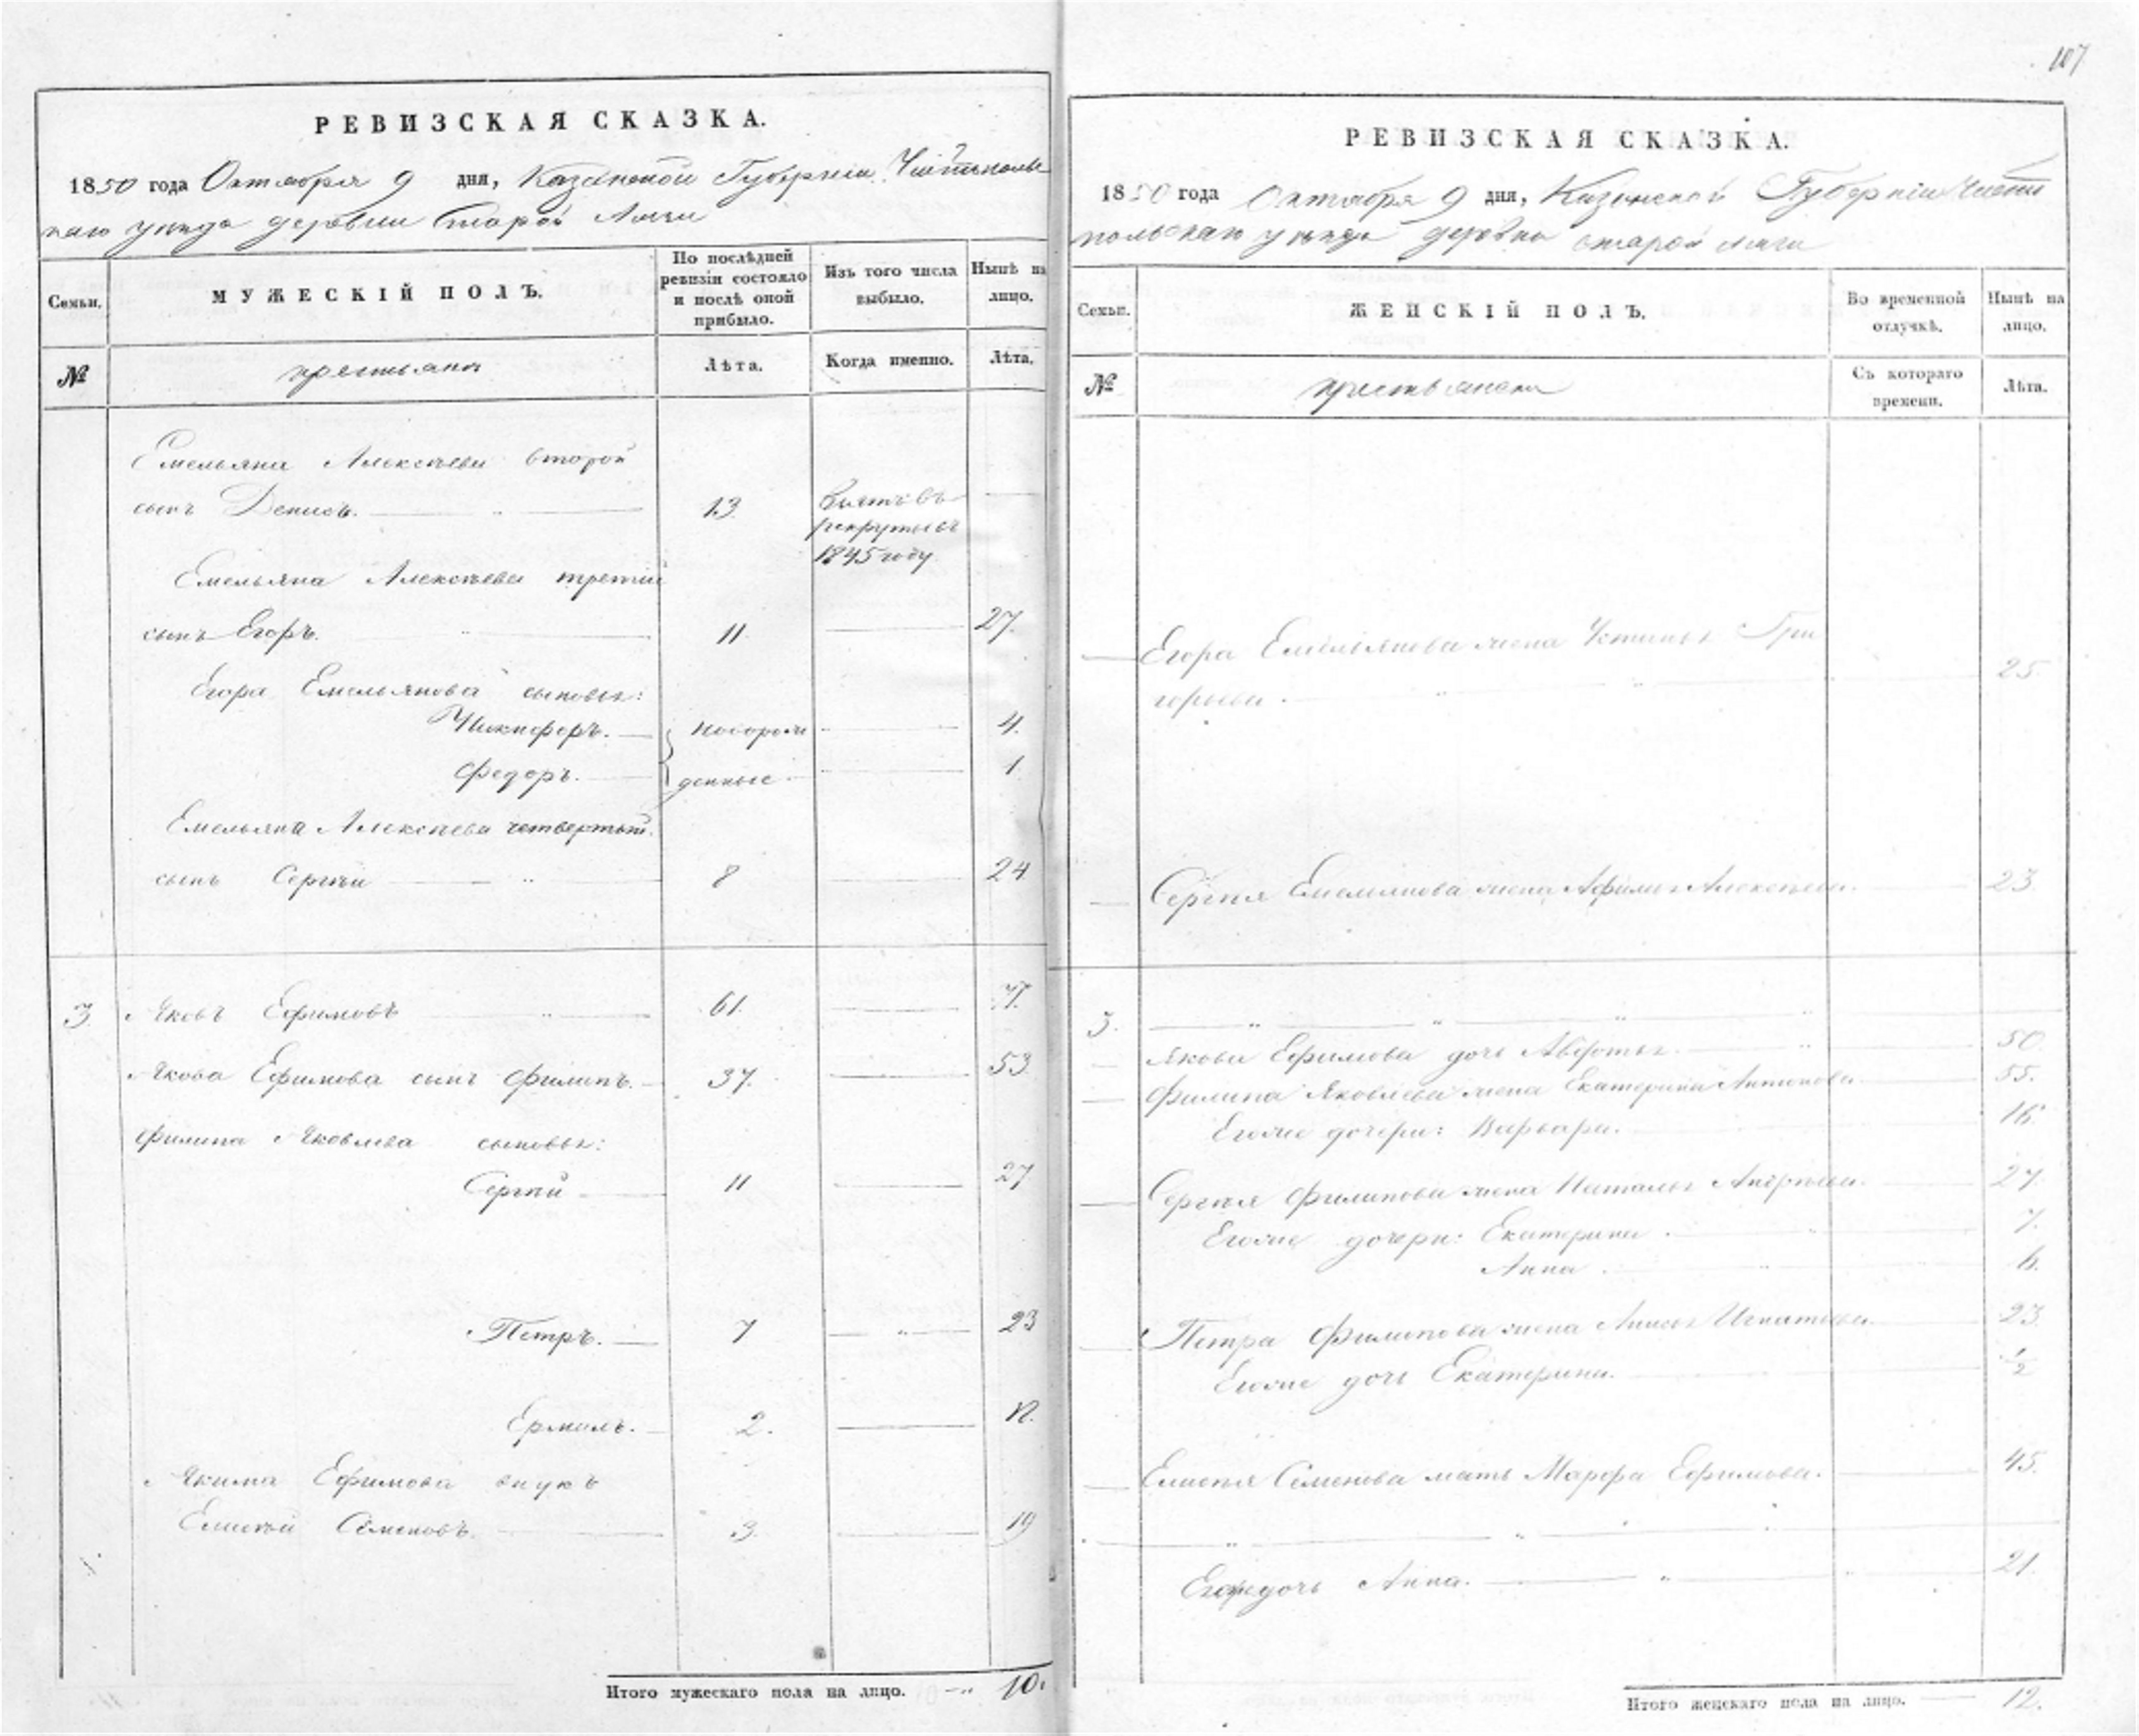 107
РЕВИЗСКАЯ СКАЗКА.
1850 года Октября 9 дня, Казанской Губернiи Чистополь
скаго уѣзда деревни Старой
Семьи.
МУЖЕСКIЙ ПОЛЪ.
По послѣдней
ревизiи состояло
и послѣ оной
прибыло.
Изъ того числа
выбыло.
Нынѣ на
лицо.
№
крестьяне
Лѣта.
Когда именно.
Лѣта.
Емельяна Алексѣева второй
сынъ Денисъ. 13
Взятъ въ
рекруты въ
1845 году
Емельяна Алексѣева третiй
сынъ Егоръ. 11 27.
Егора Емельянова сыновья:
Никифоръ. новорож 4.
Федоръ. денные 1
Емельяна Алексѣева четвертый
сынъ Сергѣй 8 24
3 Яковъ Ефимовъ 61. 77.
Якова Ефимова сынъ Филипъ. 37. 53
Филипа Яковлева сыновья:
Сергѣй 11 27
Петръ. 7 23
Ермилъ. 2.
Якима Ефимова внукъ
Елисѣй Семеновъ. 3. 19
Итого мужескаго пола на лицо. 10.
РЕВИЗСКАЯ СКАЗКА.
1850 года Октября 9 дня, Казанской Губернiи Чисто
польскаго уѣзда деревни старой
Семьи.
ЖЕНСКIЙ ПОЛЪ.
Во временной
отлучкѣ.
Нынѣ на
лицо.
№
крестьянки
Съ котораго
времени.
Лѣта.
Егора Емельянова жена Устинья Гри
горьева. 25
Сергѣя Емельянова жена Афимья Алексѣева. 23
3.
Якова Ефимова дочь Авдотья. 50.
Филипа Яковлева жена Екатерина Антонова 55.
Егоже дочери: Варвара. 16
Сергѣя Филипова жена Наталья Андрѣева. 27.
Егоже дочери: Екатерина. 7.
Анна. 6.
Петра Филипова жена Анисья Игнатьева. 23
Егоже дочь Екатерина. 1/2
Елисѣя Семенова мать Марфа Ефимова. 45.
дочь Анна. 21.
Итого женскаго пола на лицо. 12.